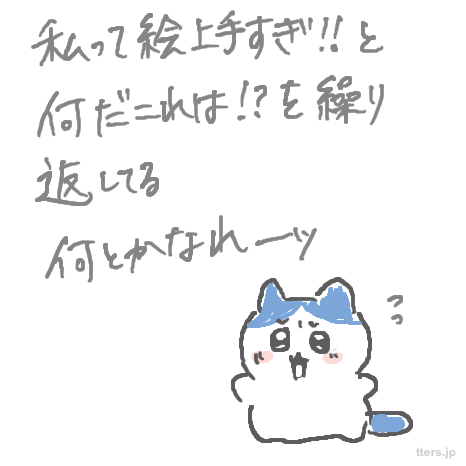 私って絵上手すぎ!!と
何だこれは!?を繰り
返してる
何とかなれーッ
っっ
tters.jp